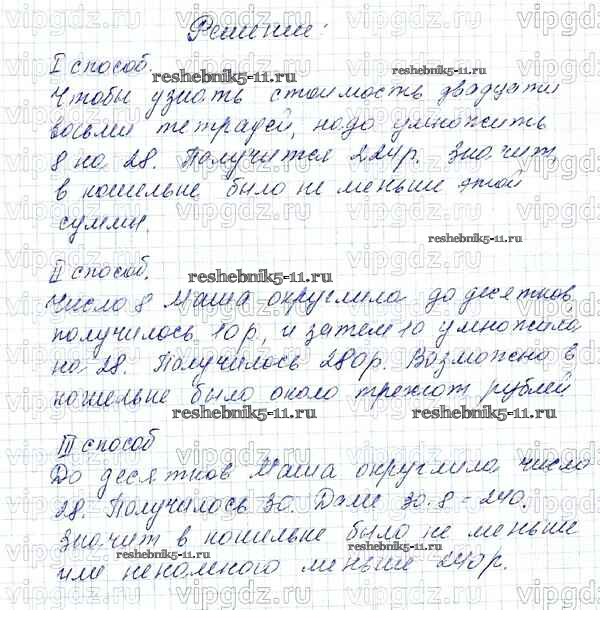 Решение:
I способ.
Чтобы узнать стоимость двадцати
восьми тетрадей, надо умножить
8 на 28. Получится 224р. Значит,
в кошельке было не меньше этой
суммы.
II способ.
Число 8 Маша округлила до десятков
получилось 10р, и затем 10 умножила
на 28. Получилось 280р. Возможно в
кошельке было около трехсот рублей
III способ
До десятков Маша округлила число
28. Получилось 30. Далее 30·8=240.
Значит в кошельке было не меньше
или ненамного меньше 240р.
reshebnik5-11.ru
reshebnik5-11.ru
reshebnik5-11.ru
reshebnik5-11.ru
reshebnik5-11.ru
reshebnik5-11.ru
reshebnik5-11.ru
reshebnik5-11.ru
vipgdz.ru